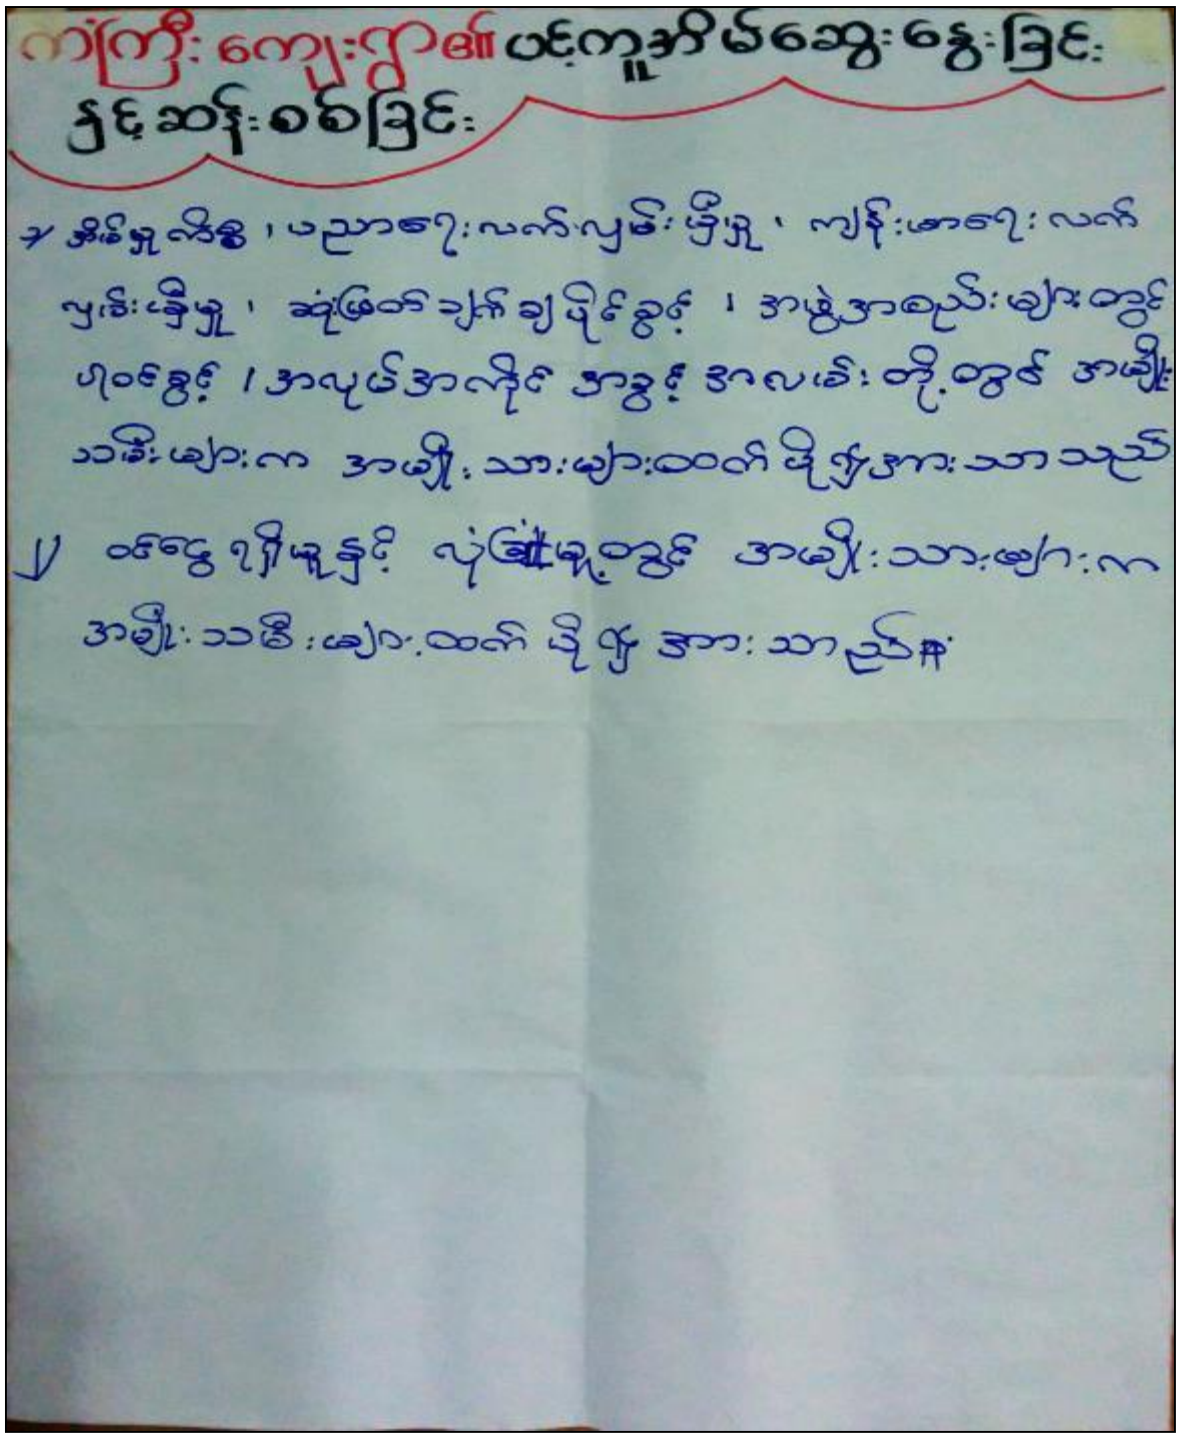 ကံကြီးကျေးရွာ၏ ပင့်ကူအိမ်ဆွေးနွေးခြင်း
နှင့်ဆန်းစစ်ခြင်း
၁။ အိမ်မှုကိစ္စ၊ ပညာရေးလက်လှမ်းမှီမှု၊ ကျန်းမာရေးလက်
လှမ်းမှီမှု၊ ဆုံးဖြတ်ချက်ချပိုင်ခွင့်၊ အဖွဲ့အစည်းများတွင်
ပါဝင်ခွင့်၊ အလုပ်အကိုင် အခွင့်အလမ်းတို့တွင် အမျိုး
သမီးများက အမျိုးသားများထက် ပို၍အားသာသည်
၂။ ဝင်ငွေရရှိမှုနှင့် တွင် အမျိုးသားများက
အမျိုးသမီးများထက် ပို၍ အားသာည်